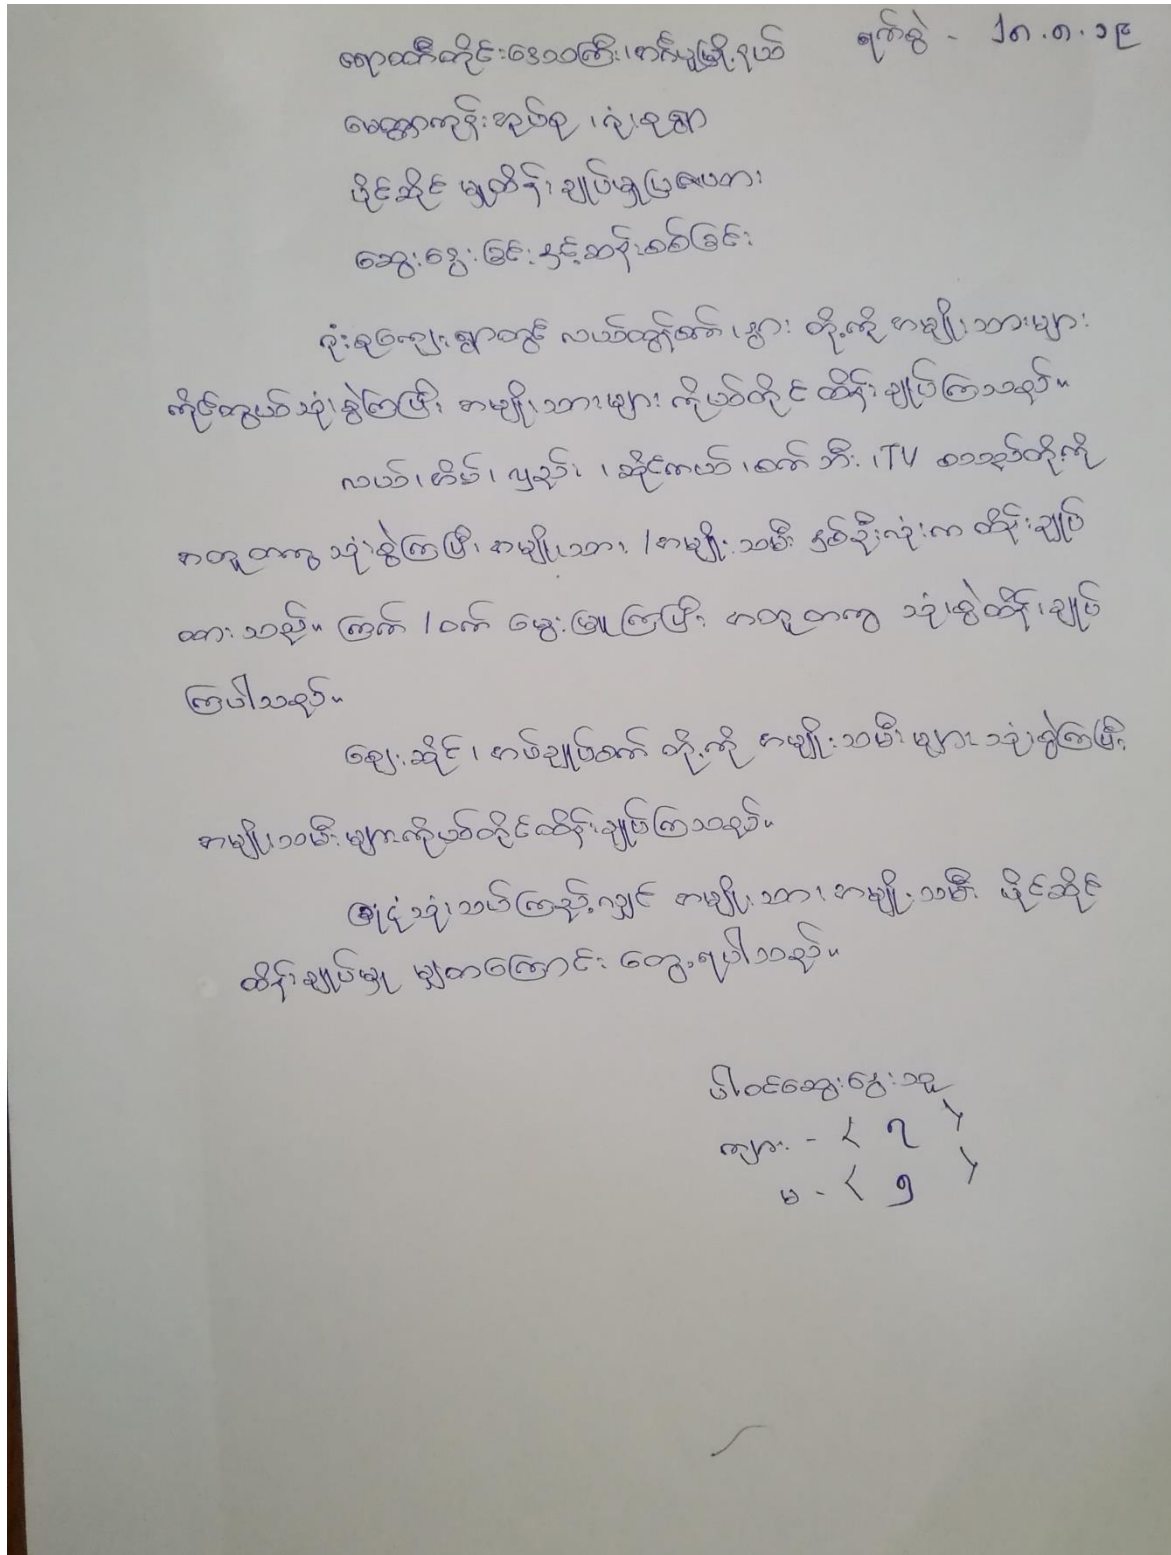 ရက်စွဲ - ၂၈.၈.၁၉
ဧရာဝတီတိုင်းဒေသကြီး၊ အင်္ဂပူမြို့နယ်
မေတ္တာကုန်းအုပ်စု ၊ ရုံးစုရွာ
ပိုင်ဆိုင်မှု ထိန်းချုပ်မှုပြဇယား
ဆွေးနွေးခြင်းနှင့်ဆန်းစစ်ခြင်း
ရုံးစုကျေးရွာတွင် လယ်ထွန်စက် ၊ နွား တို့ကို အမျိုးသားများ
ကိုင်တွယ်သုံးစွဲကြပြီး အမျိုးသားများ ကိုယ်တိုင် ထိန်းချုပ်ကြသည်။
လယ် ၊ အိမ် ၊ လှည်း ၊ ဆိုင်ကယ် ၊ စက်ဘီး ၊ TV စသည်တို့ကို
အတူတကွ သုံးစွဲကြပြီး အမျိုးသား / အမျိုးသမီး နှစ်ဦးလုံးက ထိန်းချုပ်
ထားသည်။ ကြက် / ဝက် မွေးမြူကြပြီး အတူတကွ သုံးစွဲထိန်းချုပ်
ကြပါသည်။
ဈေးဆိုင် ၊ အပ်ချုပ်စက် တို့ကို အမျိုးသမီးများ သုံးစွဲကြပြီး
အမျိုးသမီးများကိုယ်တိုင်ထိန်းချုပ်ကြသည်။
ခြုံငုံသုံးသပ်ကြည့်လျှင် အမျိုးသား အမျိုးသမီး ပိုင်ဆိုင်
ထိန်းချုပ်မှု မျှတကြောင်း တွေ့ရပါသည်။
ပါဝင်ဆွေးနွေးသူ
ကျား - ( ၇ )
မ - ( ၅ )